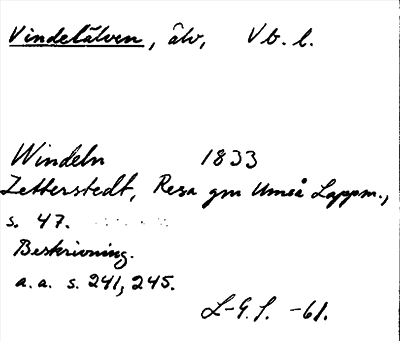 Vindelälven, älv, Vb. l.
Windeln 1833
Zetterstedt, Resa gm Umeå Lappm.,
s. 47.
Beskrivning.
a.a. s. 241, 245.
L-G. S. -61.